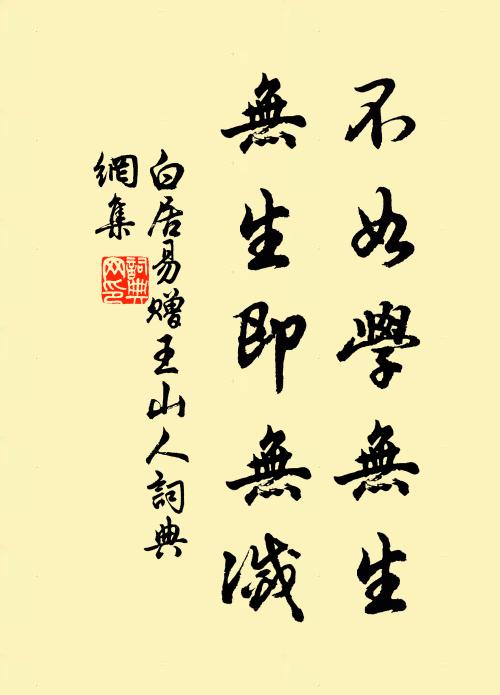 不如學無生
無生即無滅
白居易贈王山人詞典
網集
詞典
网印